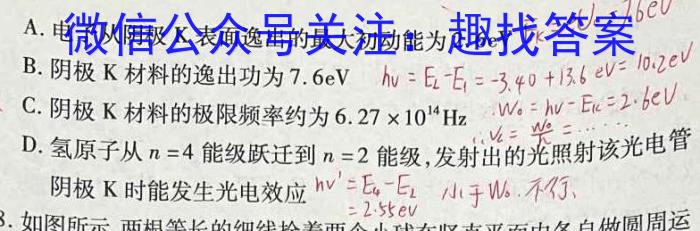 微信公众号关注：趣找答案
A. 电子从阴极 K 表面逸出的最大初动能为 7.6eV
B. 阴极 K 材料的逸出功为 7.6eV hν = E₂-E₁ = -3.40+13.6 eV = 10.2eV
C. 阴极 K 材料的极限频率约为 6.27×10¹⁴Hz ∴W₀ = hν-Eₖ = 2.6eV
∴ν_c = W₀/h = ……
D. 氢原子从 n=4 能级跃迁到 n=2 能级,发射出的光照射该光电管
阴极 K 时能发生光电效应 hν' = E₄-E₂ 小于W₀.不行.
= 2.55eV
8. 如图所示,两根等长的细线拴着两个小球在竖直平面内各自做圆周运